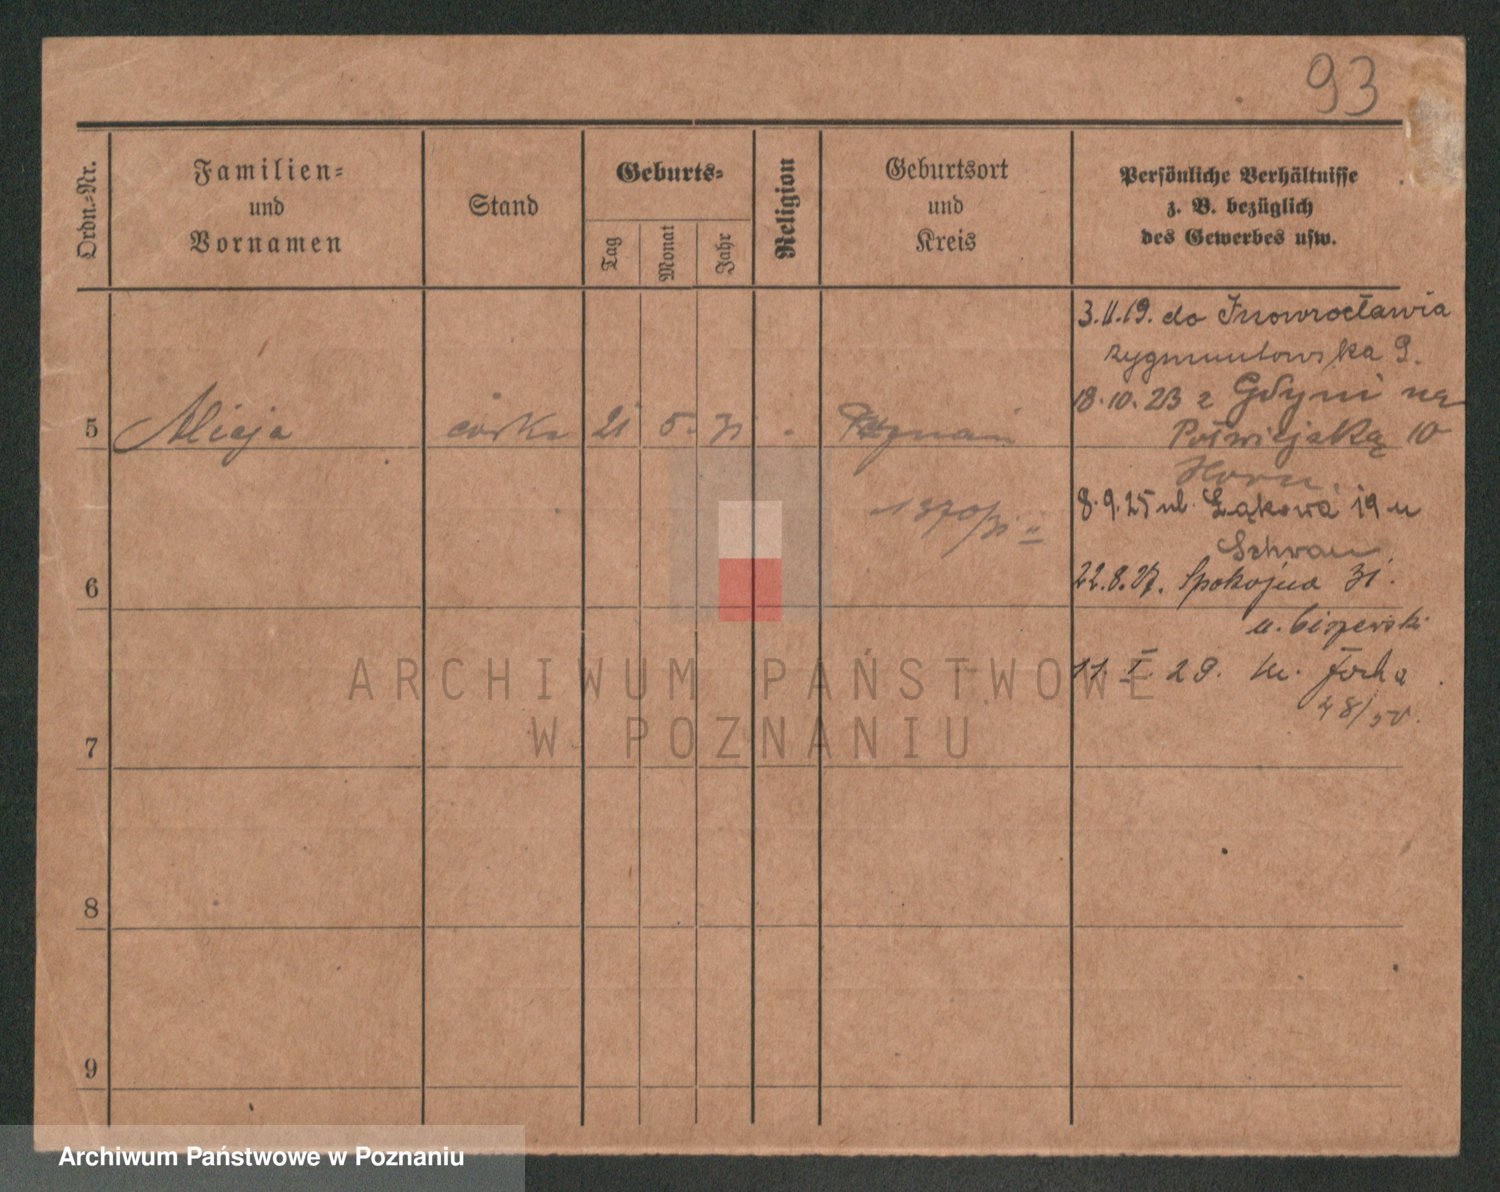 93
Ordn.-Nr.
Familien-
und
Vornamen
Stand
Geburts-
Tag
Monat
Jahr
Religion
Geburtsort
und
Kreis
Persönliche Verhältnisse
z. B. bezüglich
des Gewerbes usw.
3.11.19. do Inowrocławia
Zygmuntowska 9.
18.10.23 z Gdyni na
10
5 Alicja córka 21 5. 31 - Poznań
Horn.
1370/31
8.9.25 ul. Łąkowa 19 u
22.8.27. Spokojna 31.
6
11. I. 29. 
48/50.
7
8
9
ARCHIWUM PAŃSTWOWE
W POZNANIU
Archiwum Państwowe w Poznaniu